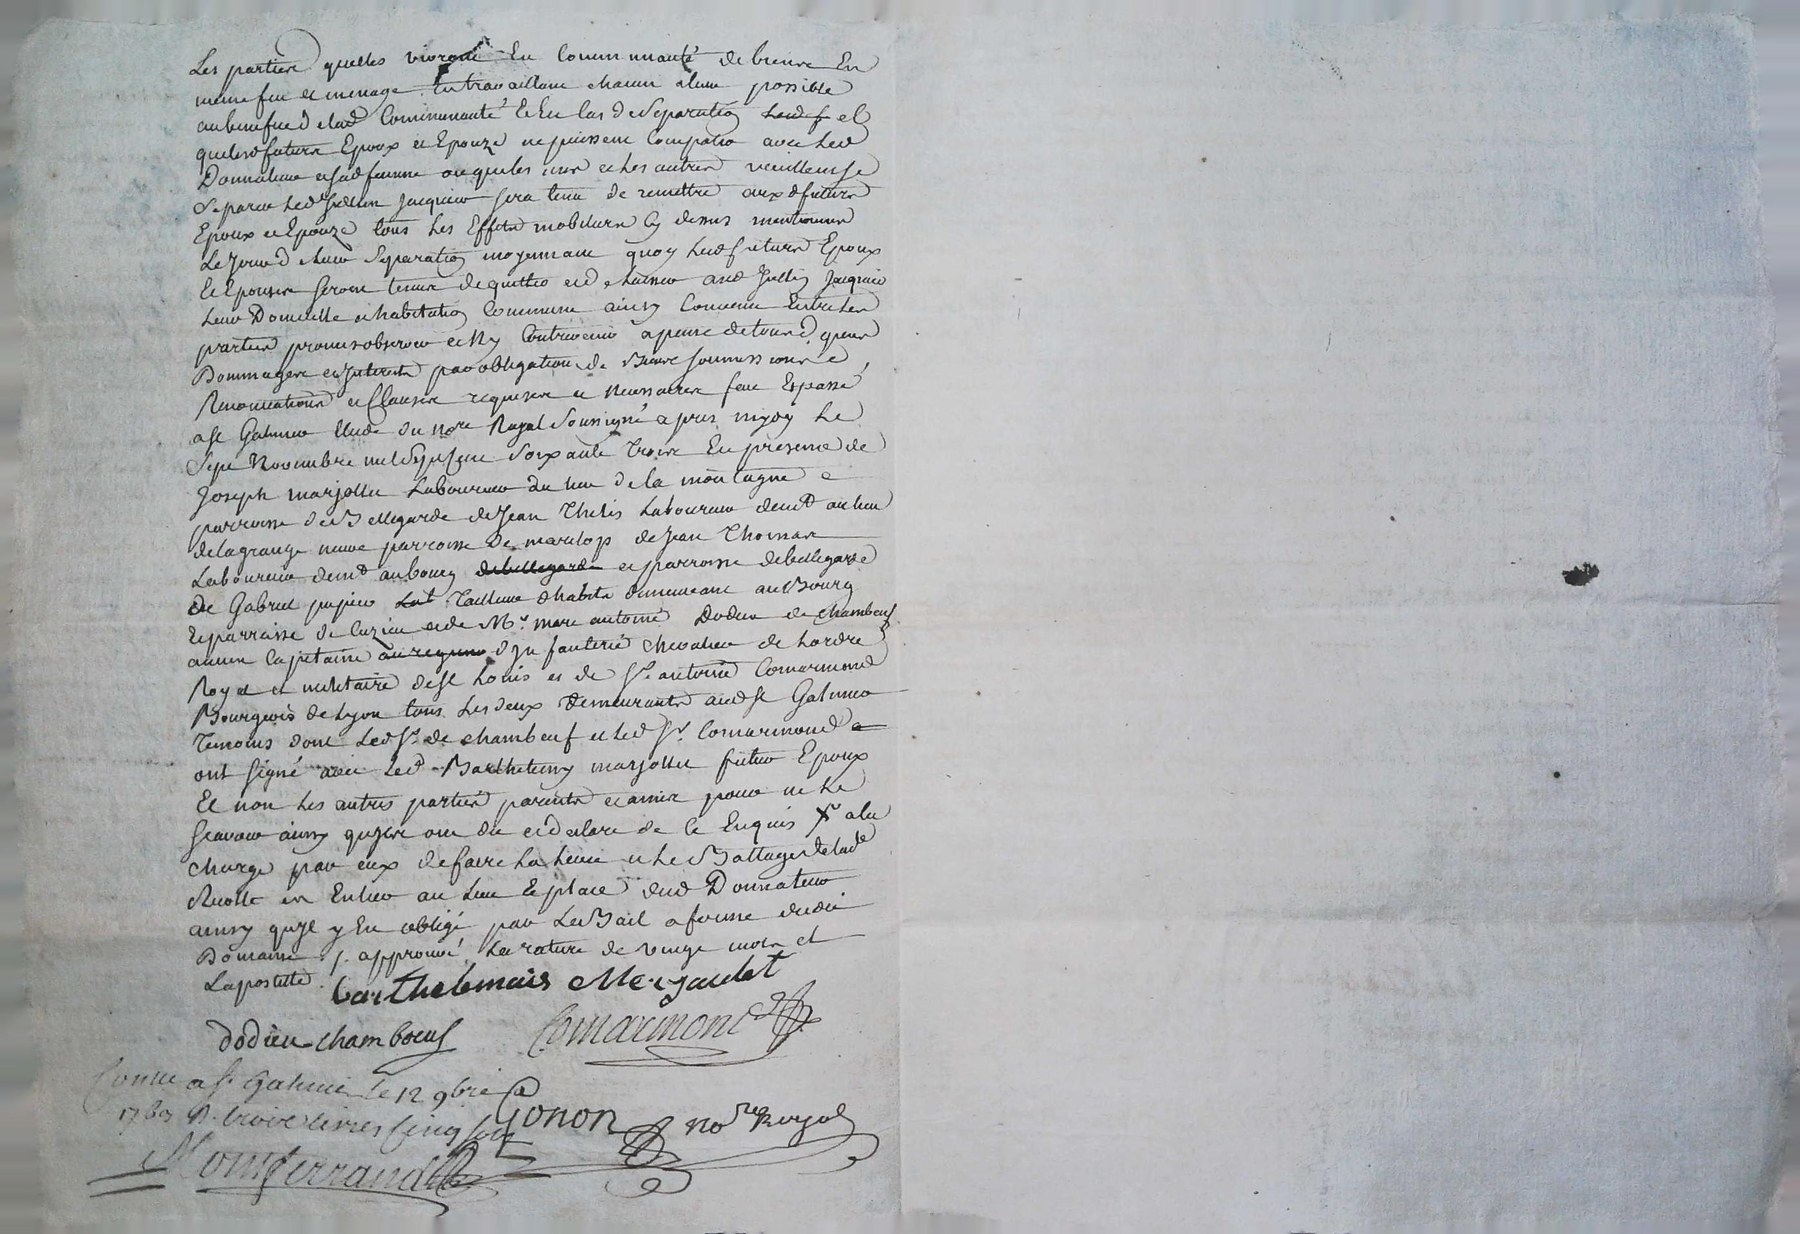 Les parties quelles vivront En Communauté de biens En
meme feu et menage En travaillant chacun a leur possible
au benefice de lad Communauté Et En Cas de Separation et
que lesd futurs Epoux et Epouze ne puissent Compatir avec led
Donnateur et sad femme ou que les uns et les autres veuillent se
Separer led Jullien Jacquier sera tenu de remettre auxd futurs
Epoux et Epouze tous les Effets mobiliers Cy dessus mentionnés
Le Jour de leur Separation moyennant quoy lesd futurs Epoux
Et Epouze seront tenus de quitter et de laisser aud Jullien Jacquier
leur Domicille et habitation Commune ainsy Convenu Entre les
parties promis observer et N'y Contrevenir a peine de tous depens
Dommages et Interets par obligation de Biens soumissions
Renonciations et Clauses requises et necessaires fait Et passé
a St Galmier Etude du nore Royal Soussigné apres midy Le
Sept Novembre mil Sept Cent Soixante Trois En presence de
Joseph marjollet Laboureur du lieu de la montagne
parroisse de Bellegarde de Jean Thelis Laboureur demt au lieu
de lagrange neuve parroisse de marclop de Jean Thomas
Laboureur demt au bourg de bellegarde et parroisse de bellegarde
de Gabriel pupier Tailleur d'habits demeurant au Bourg
Et parroisse de Cuzieu et de Mr marc antoine Dodieu de Chambeuf
ancien Capitaine au regiment d'Infanterie Chevalier de L'ordre
Royal et militaire de St Louis et de Sr antoine Comarmond
Bourgeois de Lyon tous Les deux Demeurants aud St Galmier
Temoins dont Led Sr de chambeuf et led Sr Comarmond
ont signé avec Led Barthelemy marjollet futur Epoux
Et non les autres parties parents et amis pour ne le
scavoir ainsy qu'ils ont dit et declaré de ce Enquis X a la
charge par eux de faire La levée et Le Battage de lad
Recolte En Entier au Lieu Et place dud Donnateur
ainsy qu'il y Est obligé par Le Bail a ferme dudit
Domaine /. approuvé La rature de vingt mots et
Lapostille. barthelemais Merjaulet
dodieu-chamboeuf Comarmond
Conllé a St Galmier le 12 9bre
1763 R. trois livres Cinq sous Gonon nore Royal
Monferrand